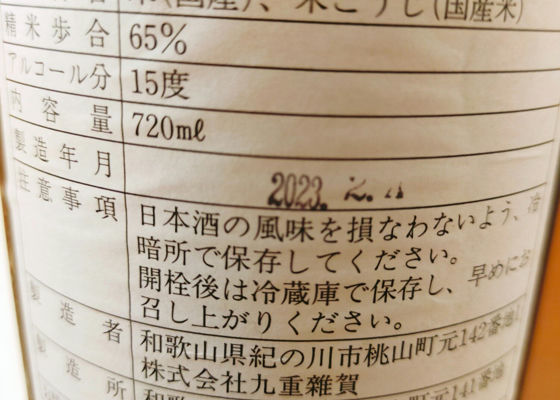 米(国産)、米こうじ(国産米)
精米歩合 65%
アルコール分 15度
内容量 720mℓ
製造年月 2023.
注意事項 日本酒の風味を損なわないよう、冷
暗所で保存してください。
開栓後は冷蔵庫で保存し、早めにお
召し上がりください。
製造者 和歌山県紀の川市桃山町元142番地
株式会社九重雜賀
製造所
町元141番